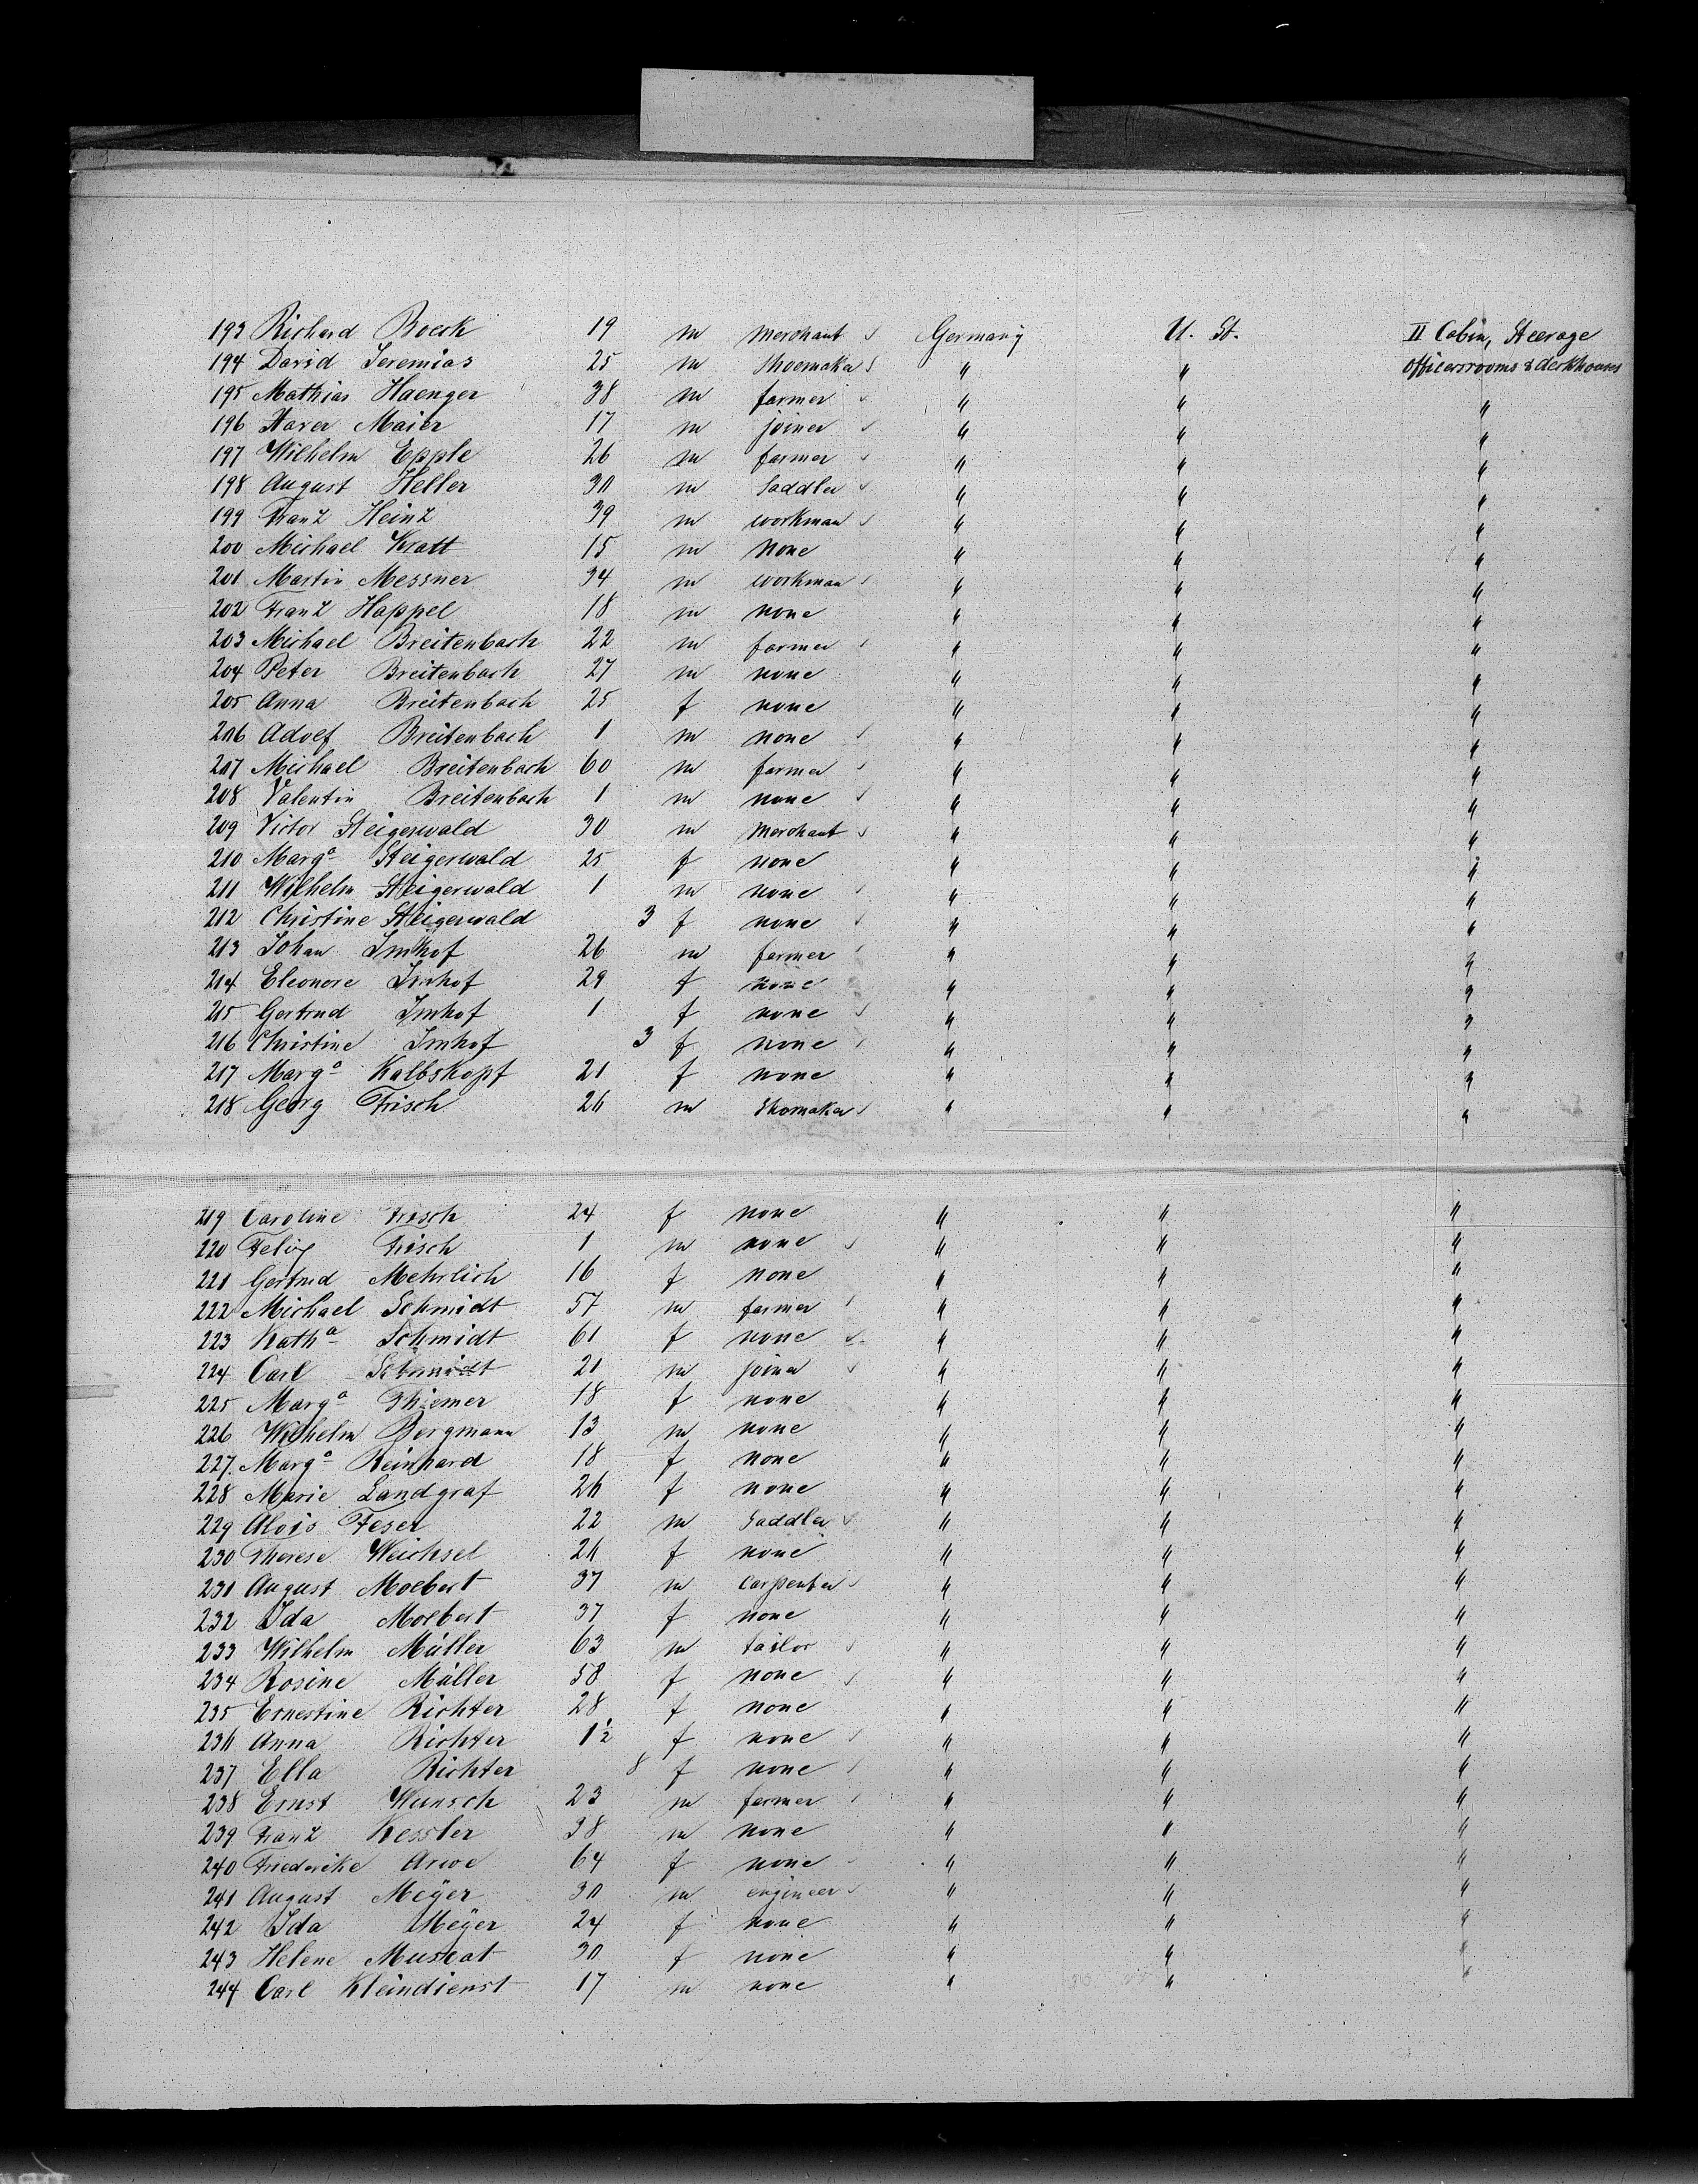 193 Richard Boeck 19 m merchant Germany U. St. II Cabin, Steerage
194 David Jeremias 25 m shoemaker " " officersrooms & deckhouses
195 Mathias Haenger 38 m farmer " " "
196 Xaver Maier 17 m joiner " " "
197 Wilhelm Epple 26 m farmer " " "
198 August Heller 30 m Saddler " " "
199 Franz Heinz 39 m workman " " "
200 Michael Kratt 15 m none " " "
201 Martin Messner 34 m workman " " "
202 Franz Happel 18 m none " " "
203 Michael Breitenbach 22 m farmer " " "
204 Peter Breitenbach 27 m none " " "
205 Anna Breitenbach 25 f none " " "
206 Adolf Breitenbach 1 m none " " "
207 Michael Breitenbach 60 m farmer " " "
208 Valentin Breitenbach 1 m none " " "
209 Victor Steigerwald 30 m merchant " " "
210 Marga Steigerwald 25 f none " " "
211 Wilhelm Steigerwald 1 m none " " "
212 Christine Steigerwald 3 f none " " "
213 Johan Imhof 26 m farmer " " "
214 Eleonore Imhof 29 f none " " "
215 Gertrud Imhof 1 f none " " "
216 Christine Imhof 3 f none " " "
217 Marga Kalbskopf 21 f none " " "
218 Georg Frisch 26 m Shomaker " " "
219 Caroline Frisch 24 f none " " "
220 Felix Frisch 1 m none " " "
221 Gertrud Mehrlich 16 f none " " "
222 Michael Schmidt 57 m farmer " " "
223 Katha Schmidt 61 f none " " "
224 Carl Schmidt 21 m joiner " " "
225 Marga Thiemer 18 f none " " "
226 Wilhelm Bergmann 13 m none " " "
227. Marga Reinhard 18 f none " " "
228 Marie Landgraf 26 f none " " "
229 Alois Feser 22 m Saddler " " "
230 Therese Weichsel 26 f none " " "
231 August Moebert 37 m carpenter " " "
232 Ida Moebert 37 f none " " "
233 Wilhelm Müller 63 m tailor " " "
234 Rosine Müller 58 f none " " "
235 Ernestine Richter 28 f none " " "
236 Anna Richter 1½ f none " " "
237 Ella Richter 8 f none " " "
238 Ernst Wunsch 23 m farmer " " "
239 Franz Kessler 38 m none " " "
240 Friederike Arwe 64 f none " " "
241 August Meÿer 30 m engineer " " "
242 Ida Meÿer 24 f none " " "
243 Helene Muskat 30 f none " " "
244 Carl Kleindienst 17 m none " " "